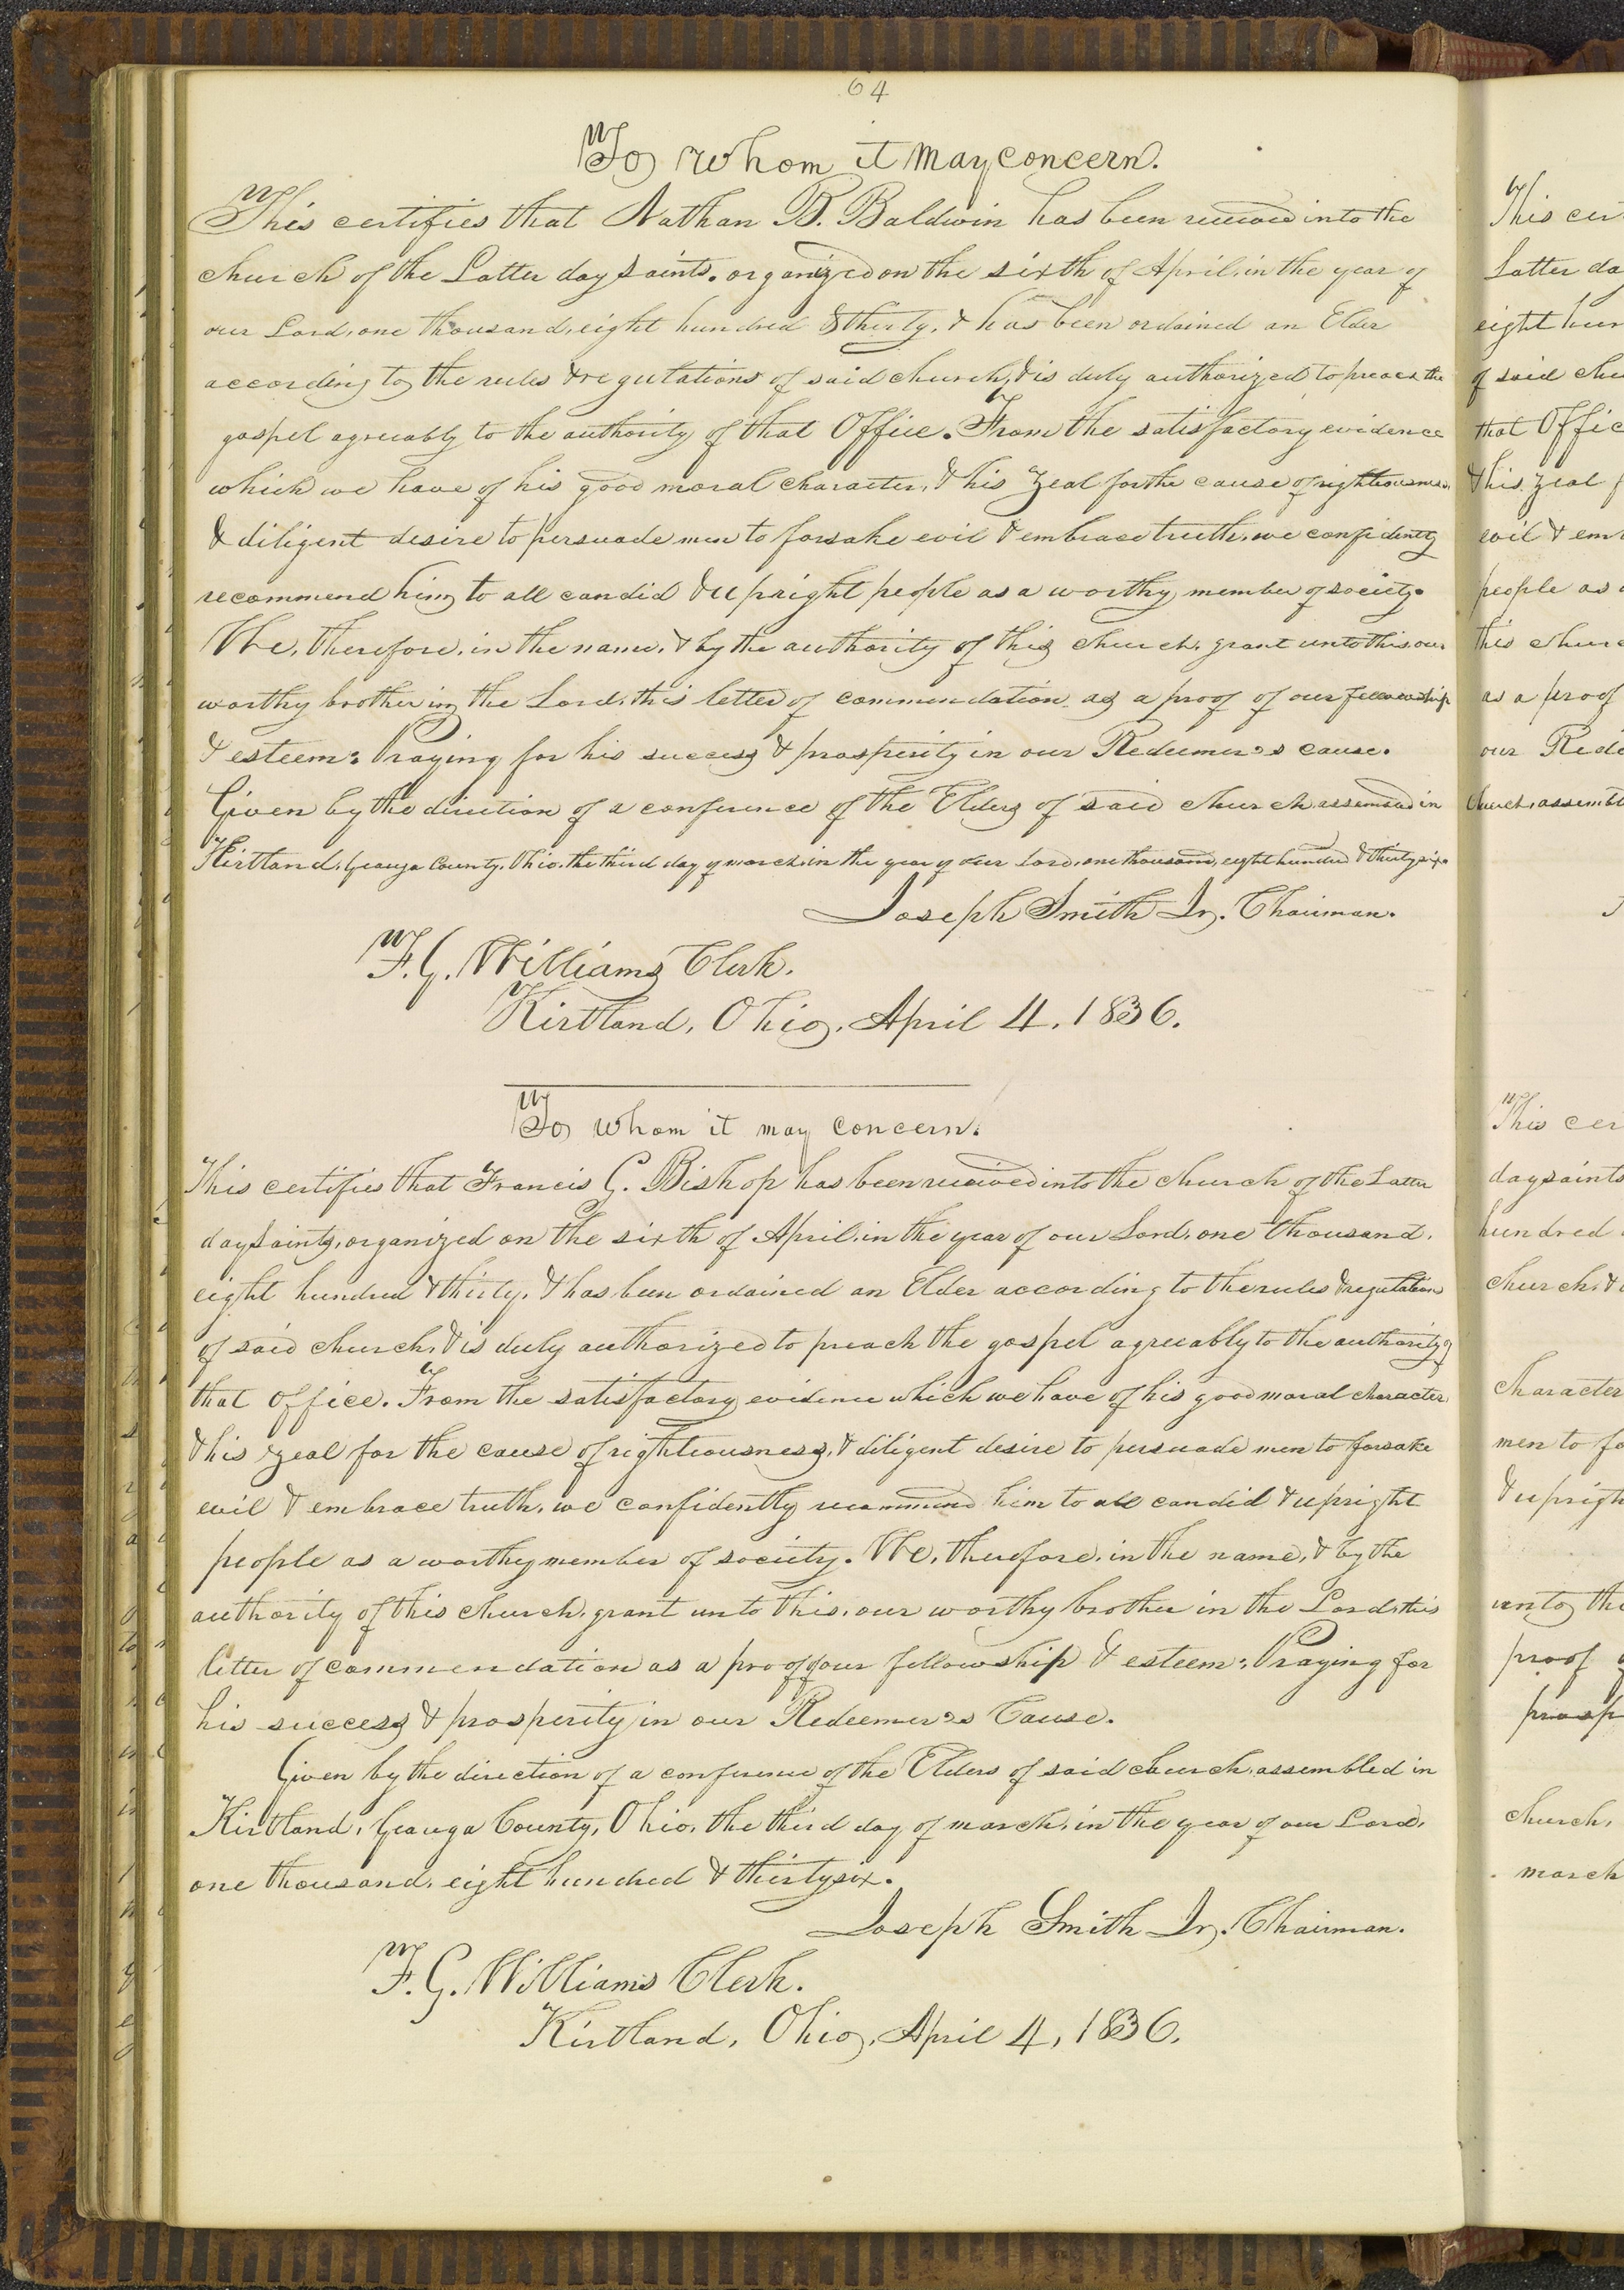 64
To whom it may concern.
This certifies that Nathan B. Baldwin has been received into the
church of the Latter day Saints. organized on the sixth of April, in the year of
our Lord, one thousand, eight hundred & thirty, & has been ordained an Elder
according to the rules & regulations of said church, & is duly authorized to preach the
gospel agreeably to the authority of that Office. From the satisfactory evidence
which we have of his good moral character, & his zeal for the cause of righteousness,
& diligent desire to persuade men to forsake evil & embrace truth, we confidently
recommend him to all candid & upright people as a worthy member of society.
We, therefore, in the name, & by the authority of this church, grant unto this, our
worthy brother in the Lord, this letter of commendation as a proof of our fellowship
& esteem: Praying for his success & prosperity in our Redeemer's cause.
Given by the direction of a conference of the Elders of said church assembled in
Kirtland, Geauga County, Ohio, the third day of march, in the year of our Lord, one thousand, eight hundred & thirty six.
Joseph Smith Jr. Chairman.
F. G. Williams Clerk.
Kirtland, Ohio, April 4, 1836.
To whom it may concern.
This certifies that Francis G. Bishop has been received into the church of the Latter
day Saints, organized on the sixth of April, in the year of our Lord, one thousand,
eight hundred & thirty, & has been ordained an Elder according to the rules & regulations
of said church, & is duly authorized to preach the gospel agreeably to the authority of
that office. From the satisfactory evidence which we have of his good moral character,
& his zeal for the cause of righteousness, & diligent desire to persuade men to forsake
evil & embrace truth, we confidently recommend him to all candid & upright
people as a worthy member of society. We, therefore, in the name, & by the
authority of this church, grant unto this, our worthy brother in the Lord, this
letter of commendation as a proof of our fellowship & esteem: Praying for
his success & prosperity in our Redeemer's Cause.
Given by the direction of a conference of the Elders of said church, assembled in
Kirtland, Geauga County, Ohio, the third day of march, in the year of our Lord,
one thousand, eight hundred & thirty six.
Joseph Smith Jr. Chairman.
F. G. Williams Clerk.
Kirtland, Ohio, April 4, 1836.
This
Latter
eight
of said
that
& his zeal
evil &
people as
this
as a proof
our
church, assem
This
day saints
hundred
church, &
character
men to
& upright
unto
proof
church,
march